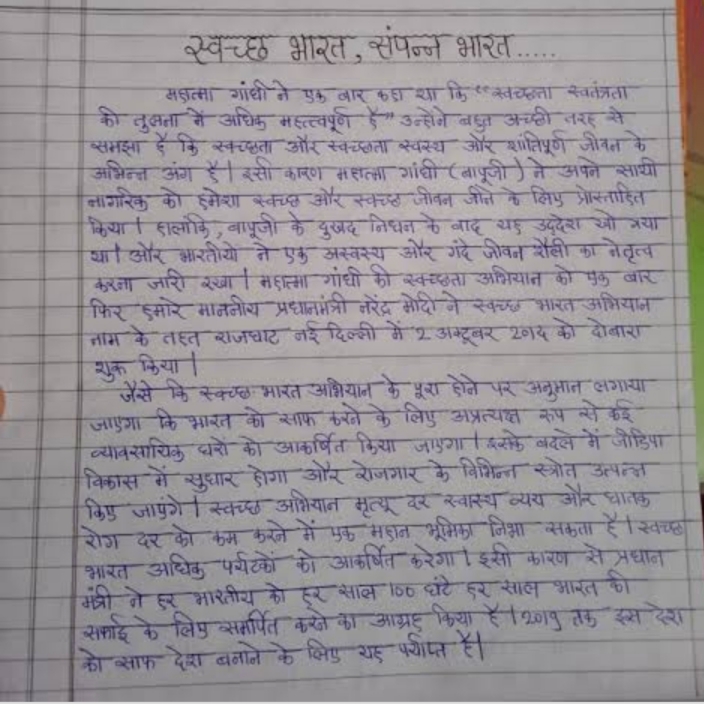 स्वच्छ भारत, संपन्न भारत.....
महात्मा गांधी ने एक बार कहा था कि "स्वच्छता स्वतंत्रता
की तुलना में अधिक महत्त्वपूर्ण है" उन्होंने बहुत अच्छी तरह से
समझा है कि स्वच्छता और स्वच्छता स्वस्थ और शांतिपूर्ण जीवन के
अभिन्न अंग है। इसी कारण महात्मा गांधी (बापूजी) ने अपने साथी
नागरिक को हमेशा स्वच्छ और स्वच्छ जीवन जीने के लिए प्रोत्साहित
किया। हालांकि, बापूजी के दुखद निधन के बाद यह उद्देश खो गया
था। और भारतीयो ने एक अस्वस्थ और गंदे जीवन शैली का नेतृत्व
करना जारी रखा। महात्मा गांधी की स्वच्छता अभियान को एक बार
फिर हमारे माननीय प्रधानमंत्री नरेंद्र मोदी ने स्वच्छ भारत अभियान
नाम के तहत राजघाट नई दिल्ली में 2 अक्टूबर को दोबारा
शुरू किया।
जैसे कि स्वच्छ भारत अभियान के पूरा होने पर अनुमान लगाया
जाएगा कि भारत को साफ करने के लिए अप्रत्यक्ष रूप से कई
व्यावसायिक घरों को आकर्षित किया जाएगा। इसके बदले में
विकास में सुधार होगा और रोजगार के विभिन्न स्त्रोत उत्पन्न
किए जाएंगे। स्वच्छ अभियान मृत्यू दर स्वास्थ्य व्यय और घातक
रोग दर को कम करने में एक महान भूमिका निभा सकता है। स्वच्छ
भारत अधिक पर्यटकों को आकर्षित करेगा। इसी कारण से प्रधान
मंत्री ने हर भारतीय को हर साल 100 घंटे हर साल भारत की
सफाई के लिए समर्पित करने का आग्रह किया है। 2019 तक इस देश
को साफ देश बनाने के लिए यह पर्याप्त है।